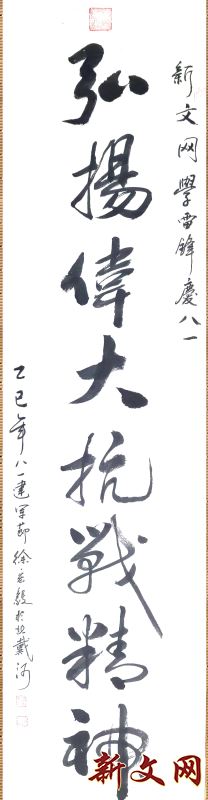 新文网學雷鋒慶八一
弘揚偉大抗戰精神
乙巳年八一建軍節徐
於北戴河
新文网